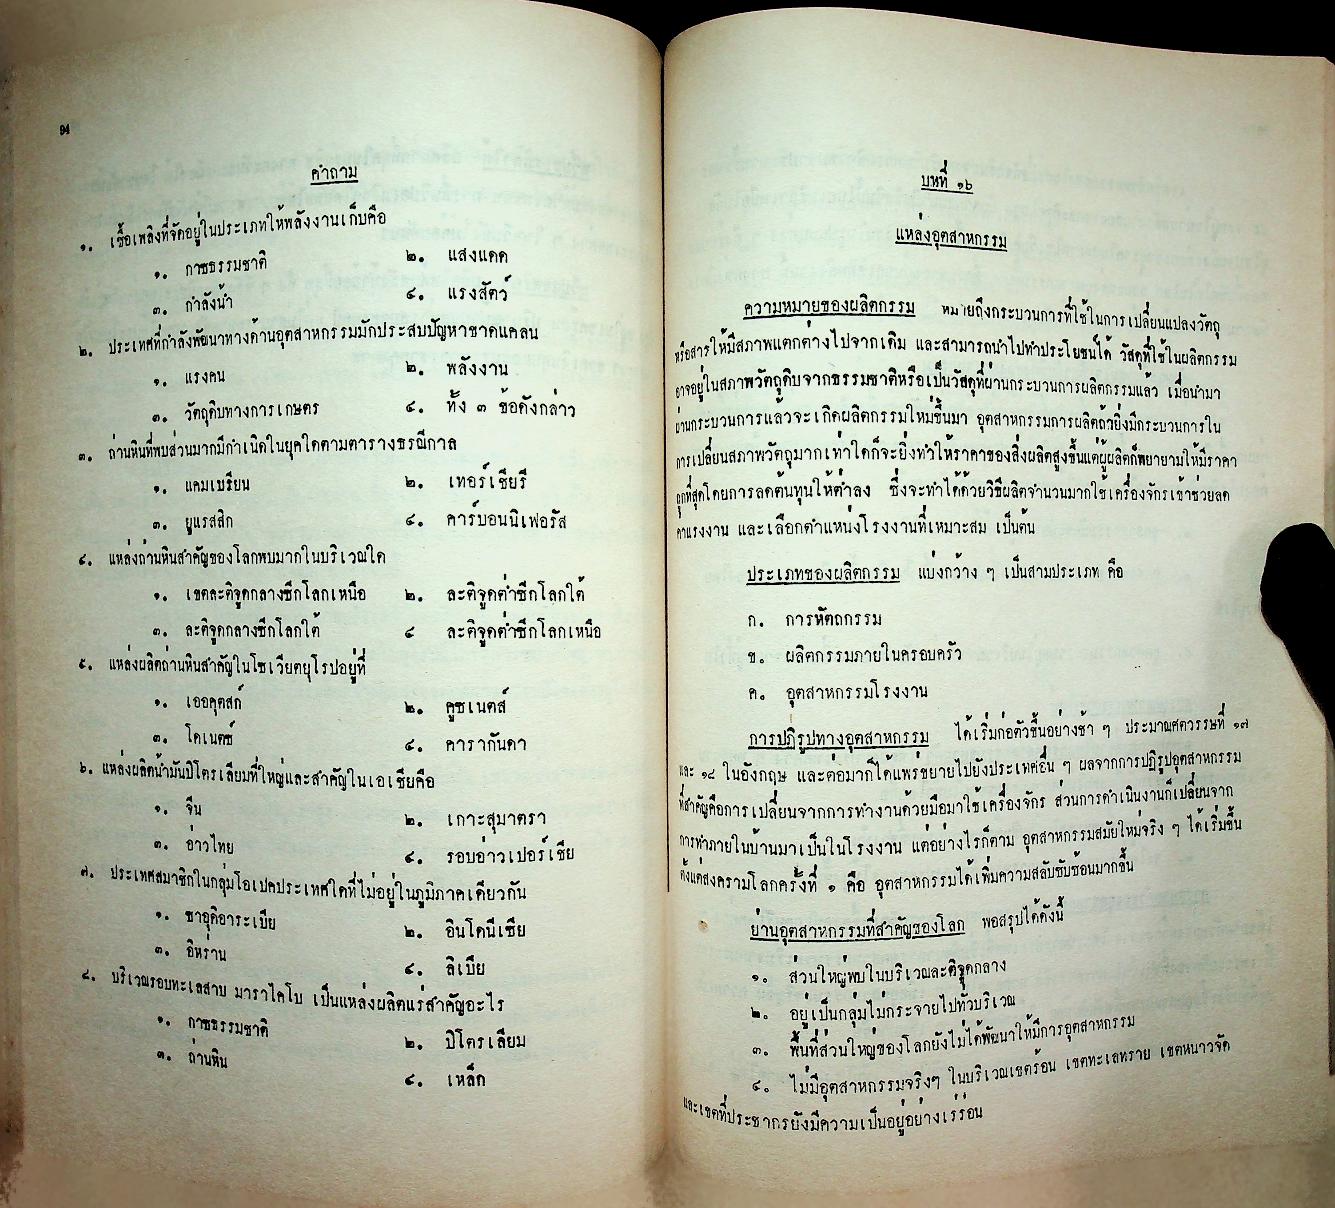 94
คำถาม
๑. เชื้อเพลิงที่จัดอยู่ในประเภทให้พลังงานเก็บคือ
๑. กาซธรรมชาติ ๒. แสงแดด
๓. กำลังน้ำ ๔. แรงสัตว์
๒. ประเทศที่กำลังพัฒนาทางด้านอุตสาหกรรมมักประสบปัญหาขาดแคลน
๑. แรงคน ๒. พลังงาน
๓. วัตถุดิบทางการเกษตร ๔. ทั้ง ๓ ข้อดังกล่าว
๓. ถ่านหินที่พบส่วนมากมีกำเนิดในยุคใดตามตารางธรณีกาล
๑. แคมเบรียน ๒. เทอร์เชียรี
๓. ยูแรสสิก ๔. คาร์บอนนิเฟอรัส
๔. แหล่งถ่านหินสำคัญของโลกพบมากในบริเวณใด
๑. เขตละติจูดกลางซีกโลกเหนือ ๒. ละติจูดต่ำซีกโลกใต้
๓. ละติจูดกลางซีกโลกใต้ ๔ ละติจูดต่ำซีกโลกเหนือ
๕. แหล่งผลิตถ่านหินสำคัญในโซเวียตยุโรปอยู่ที่
๑. เออคุตสก์ ๒. คูซเนตส์
๓. โดเนตซ์ ๔. คารากันดา
๖. แหล่งผลิตน้ำมันปิโตรเลียมที่ใหญ่และสำคัญในเอเซียคือ
๑. จีน ๒. เกาะสุมาตรา
๓. อ่าวไทย ๔. รอบอ่าวเปอร์เซีย
๗. ประเทศสมาชิกในกลุ่มโอเปคประเทศใดที่ไม่อยู่ในภูมิภาคเดียวกัน
๑. ซาอุดิอาระเบีย ๒. อินโดนีเซีย
๓. อิหร่าน ๔. ลิเบีย
๘. บริเวณรอบทะเลสาบ มาราไคโบ เป็นแหล่งผลิตแร่สำคัญอะไร
๑. กาซธรรมชาติ ๒. ปิโตรเลียม
๓. ถ่านหิน ๔. เหล็ก
บทที่ ๑๖
แหล่งอุตสาหกรรม
ความหมายของผลิตกรรม หมายถึงกระบวนการที่ใช้ในการเปลี่ยนแปลงวัตถุ
หรือสารให้มีสภาพแตกต่างไปจากเดิม และสามารถนำไปทำประโยชน์ได้ วัสดุที่ใช้ในผลิตกรรม
อาจอยู่ในสภาพวัตถุดิบจากธรรมชาติหรือเป็นวัสดุที่ผ่านกระบวนการผลิตกรรมแล้ว เมื่อนำมา
ผ่านกระบวนการแล้วจะเกิดผลิตกรรมใหม่ขึ้นมา อุตสาหกรรมการผลิตถ้ายิ่งมีกระบวนการใน
การเปลี่ยนสภาพวัตถุมากเท่าใดก็จะยิ่งทำให้ราคาของสิ่งผลิตสูงขึ้นแต่ผู้ผลิตก็พยายามให้มีราคา
ถูกที่สุดโดยการลดต้นทุนให้ต่ำลง ซึ่งจะทำได้ด้วยวิธีผลิตจำนวนมากใช้เครื่องจักรเข้าช่วยลด
ค่าแรงงาน และเลือกตำแหน่งโรงงานที่เหมาะสม เป็นต้น
ประเภทของผลิตกรรม แบ่งกว้าง ๆ เป็นสามประเภท คือ
ก. การหัตถกรรม
ข. ผลิตกรรมภายในครอบครัว
ค. อุตสาหกรรมโรงงาน
การปฏิรูปทางอุตสาหกรรม ได้เริ่มก่อตัวขึ้นอย่างช้า ๆ ประมาณศตวรรษที่ ๑๗
และ ๑๘ ในอังกฤษ และต่อมาก็ได้แพร่ขยายไปยังประเทศอื่น ๆ ผลจากการปฏิรูปอุตสาหกรรม
ที่สำคัญคือการเปลี่ยนจากการทำงานด้วยมือมาใช้เครื่องจักร ส่วนการดำเนินงานก็เปลี่ยนจาก
การทำภายในบ้านมาเป็นในโรงงาน แต่อย่างไรก็ตาม อุตสาหกรรมสมัยใหม่จริง ๆ ได้เริ่มขึ้น
ตั้งแต่สงครามโลกครั้งที่ ๑ คือ อุตสาหกรรมได้เพิ่มความสลับซับซ้อนมากขึ้น
ย่านอุตสาหกรรมที่สำคัญของโลก พอสรุปได้ดังนี้
๑. ส่วนใหญ่พบในบริเวณละติจูดกลาง
๒. อยู่เป็นกลุ่มไม่กระจายไปทั่วบริเวณ
๓. พื้นที่ส่วนใหญ่ของโลกยังไม่ได้พัฒนาให้มีการอุตสาหกรรม
๔. ไม่มีอุตสาหกรรมจริงๆ ในบริเวณเขตร้อน เขตทะเลทราย เขตหนาวจัด
และเขตที่ประชากรยังมีความเป็นอยู่อย่างเร่ร่อน